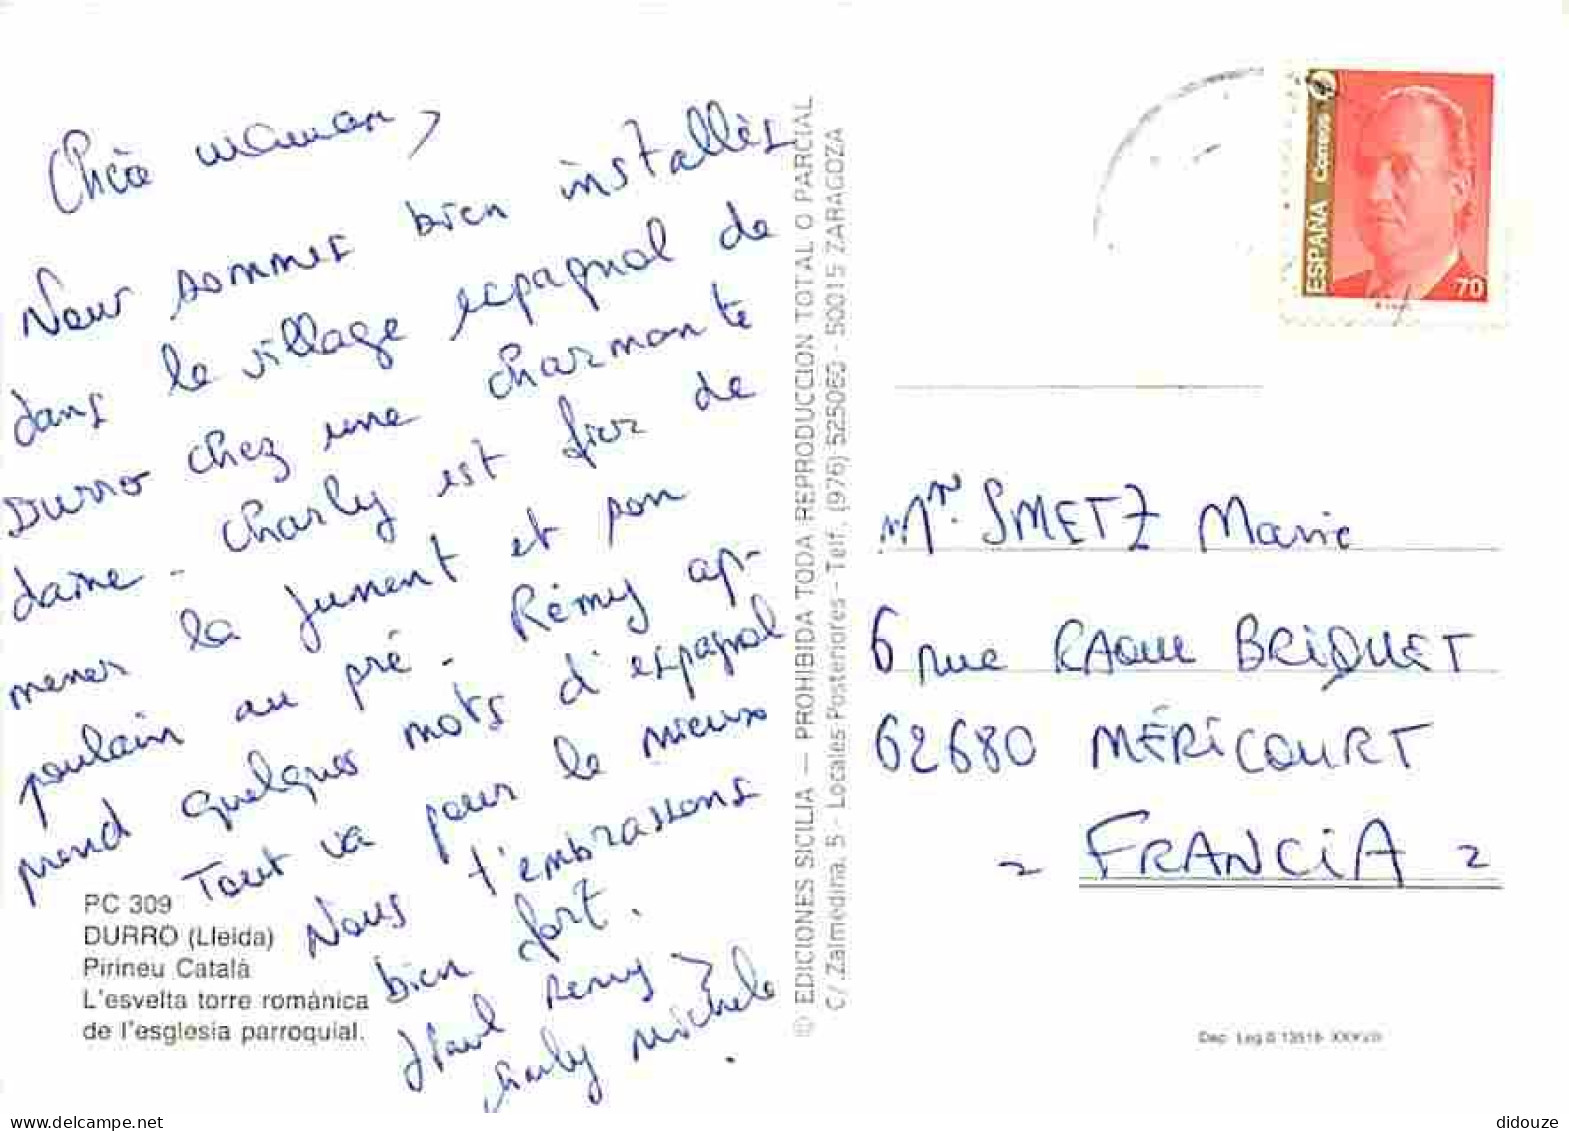 Chère maman,
Nous sommes bien installés
dans le village espagnol de
Durro chez une charmante
dame - Charly est fier de
mener la jument et son
poulain au pré - Rémy ap-
prend quelques mots d'espagnol
Tout va pour le mieux
Nous t'embrassons
bien fort.
Paul Remy
Charly Michele
PC 309
DURRO (Lleida)
Pirineu Català
L'esvelta torre romànica
de l'esglesia parroquial.
© EDICIONES SICILIA — PROHIBIDA TODA REPRODUCCION TOTAL O PARCIAL
C/. Zalmedina, 5 - Locales Posteriores - Telf. (976) 525060 - 50015 ZARAGOZA
ESPAÑA Correos
70
Mme. SMETZ Marie
6 rue RAOUL BRIQUET
62680 MÉRICOURT
- FRANCIA -
Dep. Leg. B 13518- XXXVIII
didouze